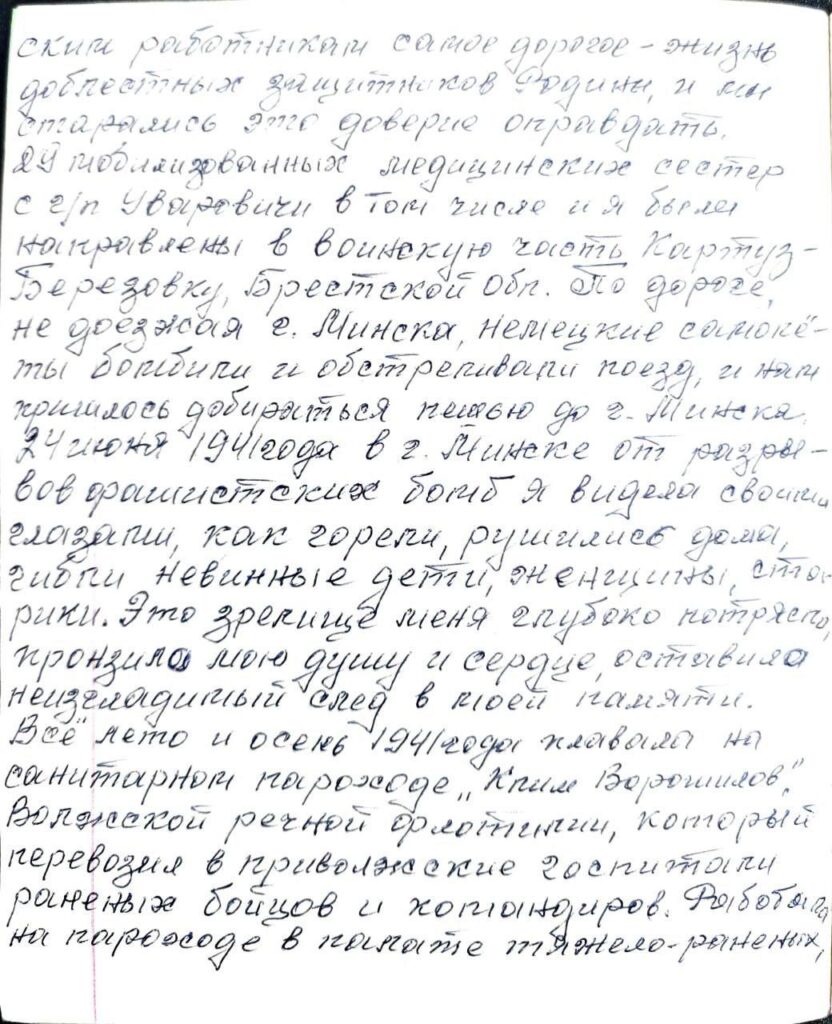 ским работникам самое дорогое - жизнь
доблестных защитников Родины, и мы
старались это доверие оправдать.
29 мобилизованных медицинских сестер
с г/п Уваровичи в том числе и я были
направлены в воинскую часть Картуз-
Березовку, Брестской обл. По дороге,
не доезжая г. Минска, немецкие самолё-
ты бомбили и обстреливали поезд, и нам
пришлось добираться пешью до г. Минска.
24 июня 1941 года в г. Минске от разры-
вов фашистских бомб я видела своими
глазами, как горели, рушились дома,
гибли невинные дети, женщины, ста-
рики. Это зрелище меня глубоко потрясло,
пронзило мою душу и сердце, оставила
неизгладимый след в моей памяти.
Всё лето и осень 1941 года плавала на
санитарном пароходе „Клим Ворошилов",
Волжской речной флотилии, который
перевозил в приволжские госпитали
раненых бойцов и командиров. Работала
на пароходе в палате тяжело-раненых,